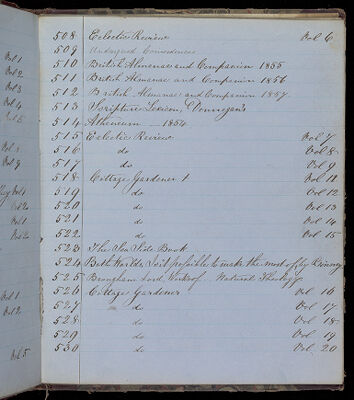 Vol 1
Vol 2
Vol 3
Vol 4
Vol 5
Vol 8
Vol 9
Vol 1
Vol 2
Vol 1
Vol 2
Vol 1
Vol 2
Vol 5
508 Eclectic Review Vol 6
509
510 British Almanac and Companion 1855
511 British Almanac and Companion 1856
512 British Almanac and Companion 1857
513 Scripture Lexicon, Dunnegan's
514 Atheneum 1854
515 Eclectic Review Vol 7
516 do Vol 8
517 do Vol 9
518 Cottage Gardener 1 Vol 11
519 do Vol 12
520 do Vol 13
521 do Vol 14
522 do Vol 15
523 The Sea Side Book
524 Both Worlds, Is it possible to make the most of by Binney
525 Brougham Lord, Works of Natural Theology
526 Cottage Gardener Vol 16
527 do Vol 17
528 do Vol 18
529 do Vol 19
530 do Vol 20